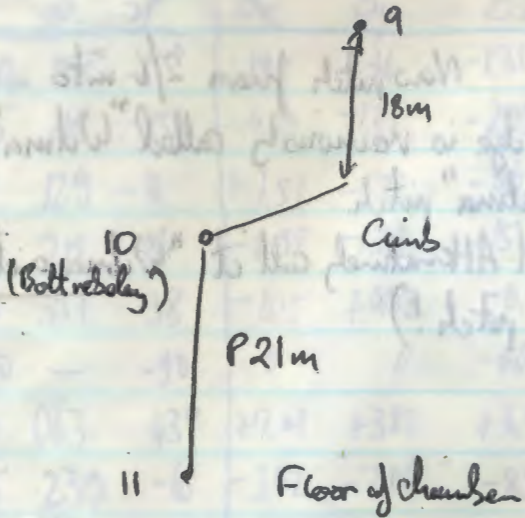 9
18m
10
Climb
(Bolt rebelay)
P21m
11
Floor of chamber